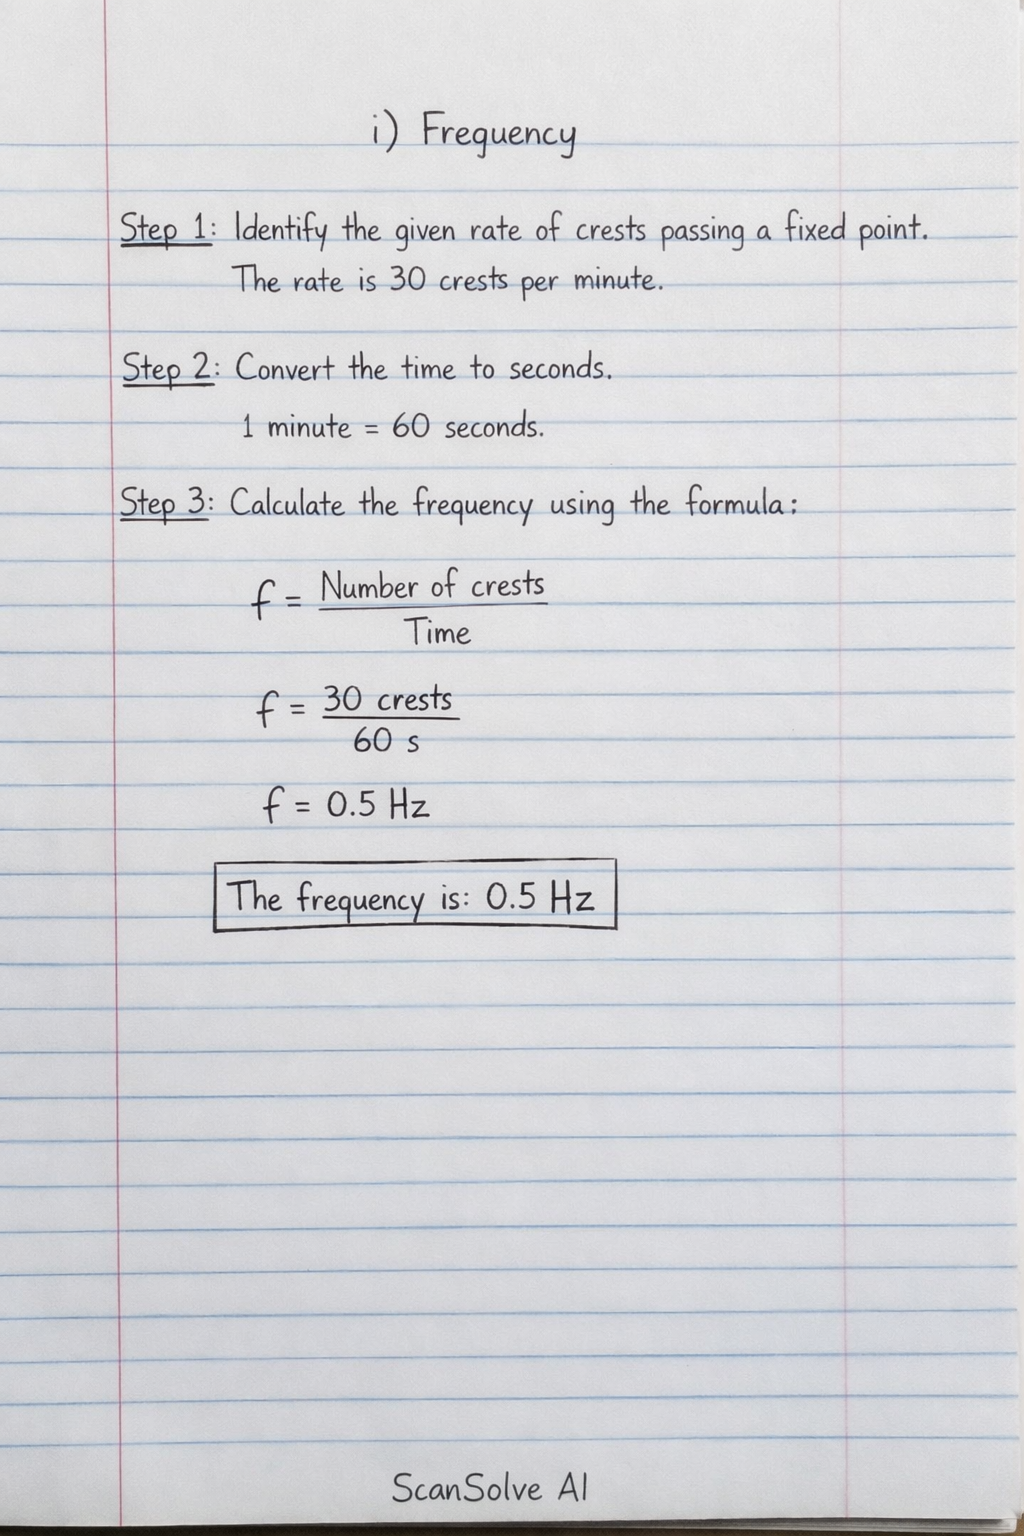 i) Frequency
Step 1: Identify the given rate of crests passing a fixed point.
The rate is 30 crests per minute.
Step 2: Convert the time to seconds.
1 minute = 60 seconds.
Step 3: Calculate the frequency using the formula:
f = Number of crests / Time
f = 30 crests / 60 s
f = 0.5 Hz
The frequency is: 0.5 Hz
ScanSolve AI